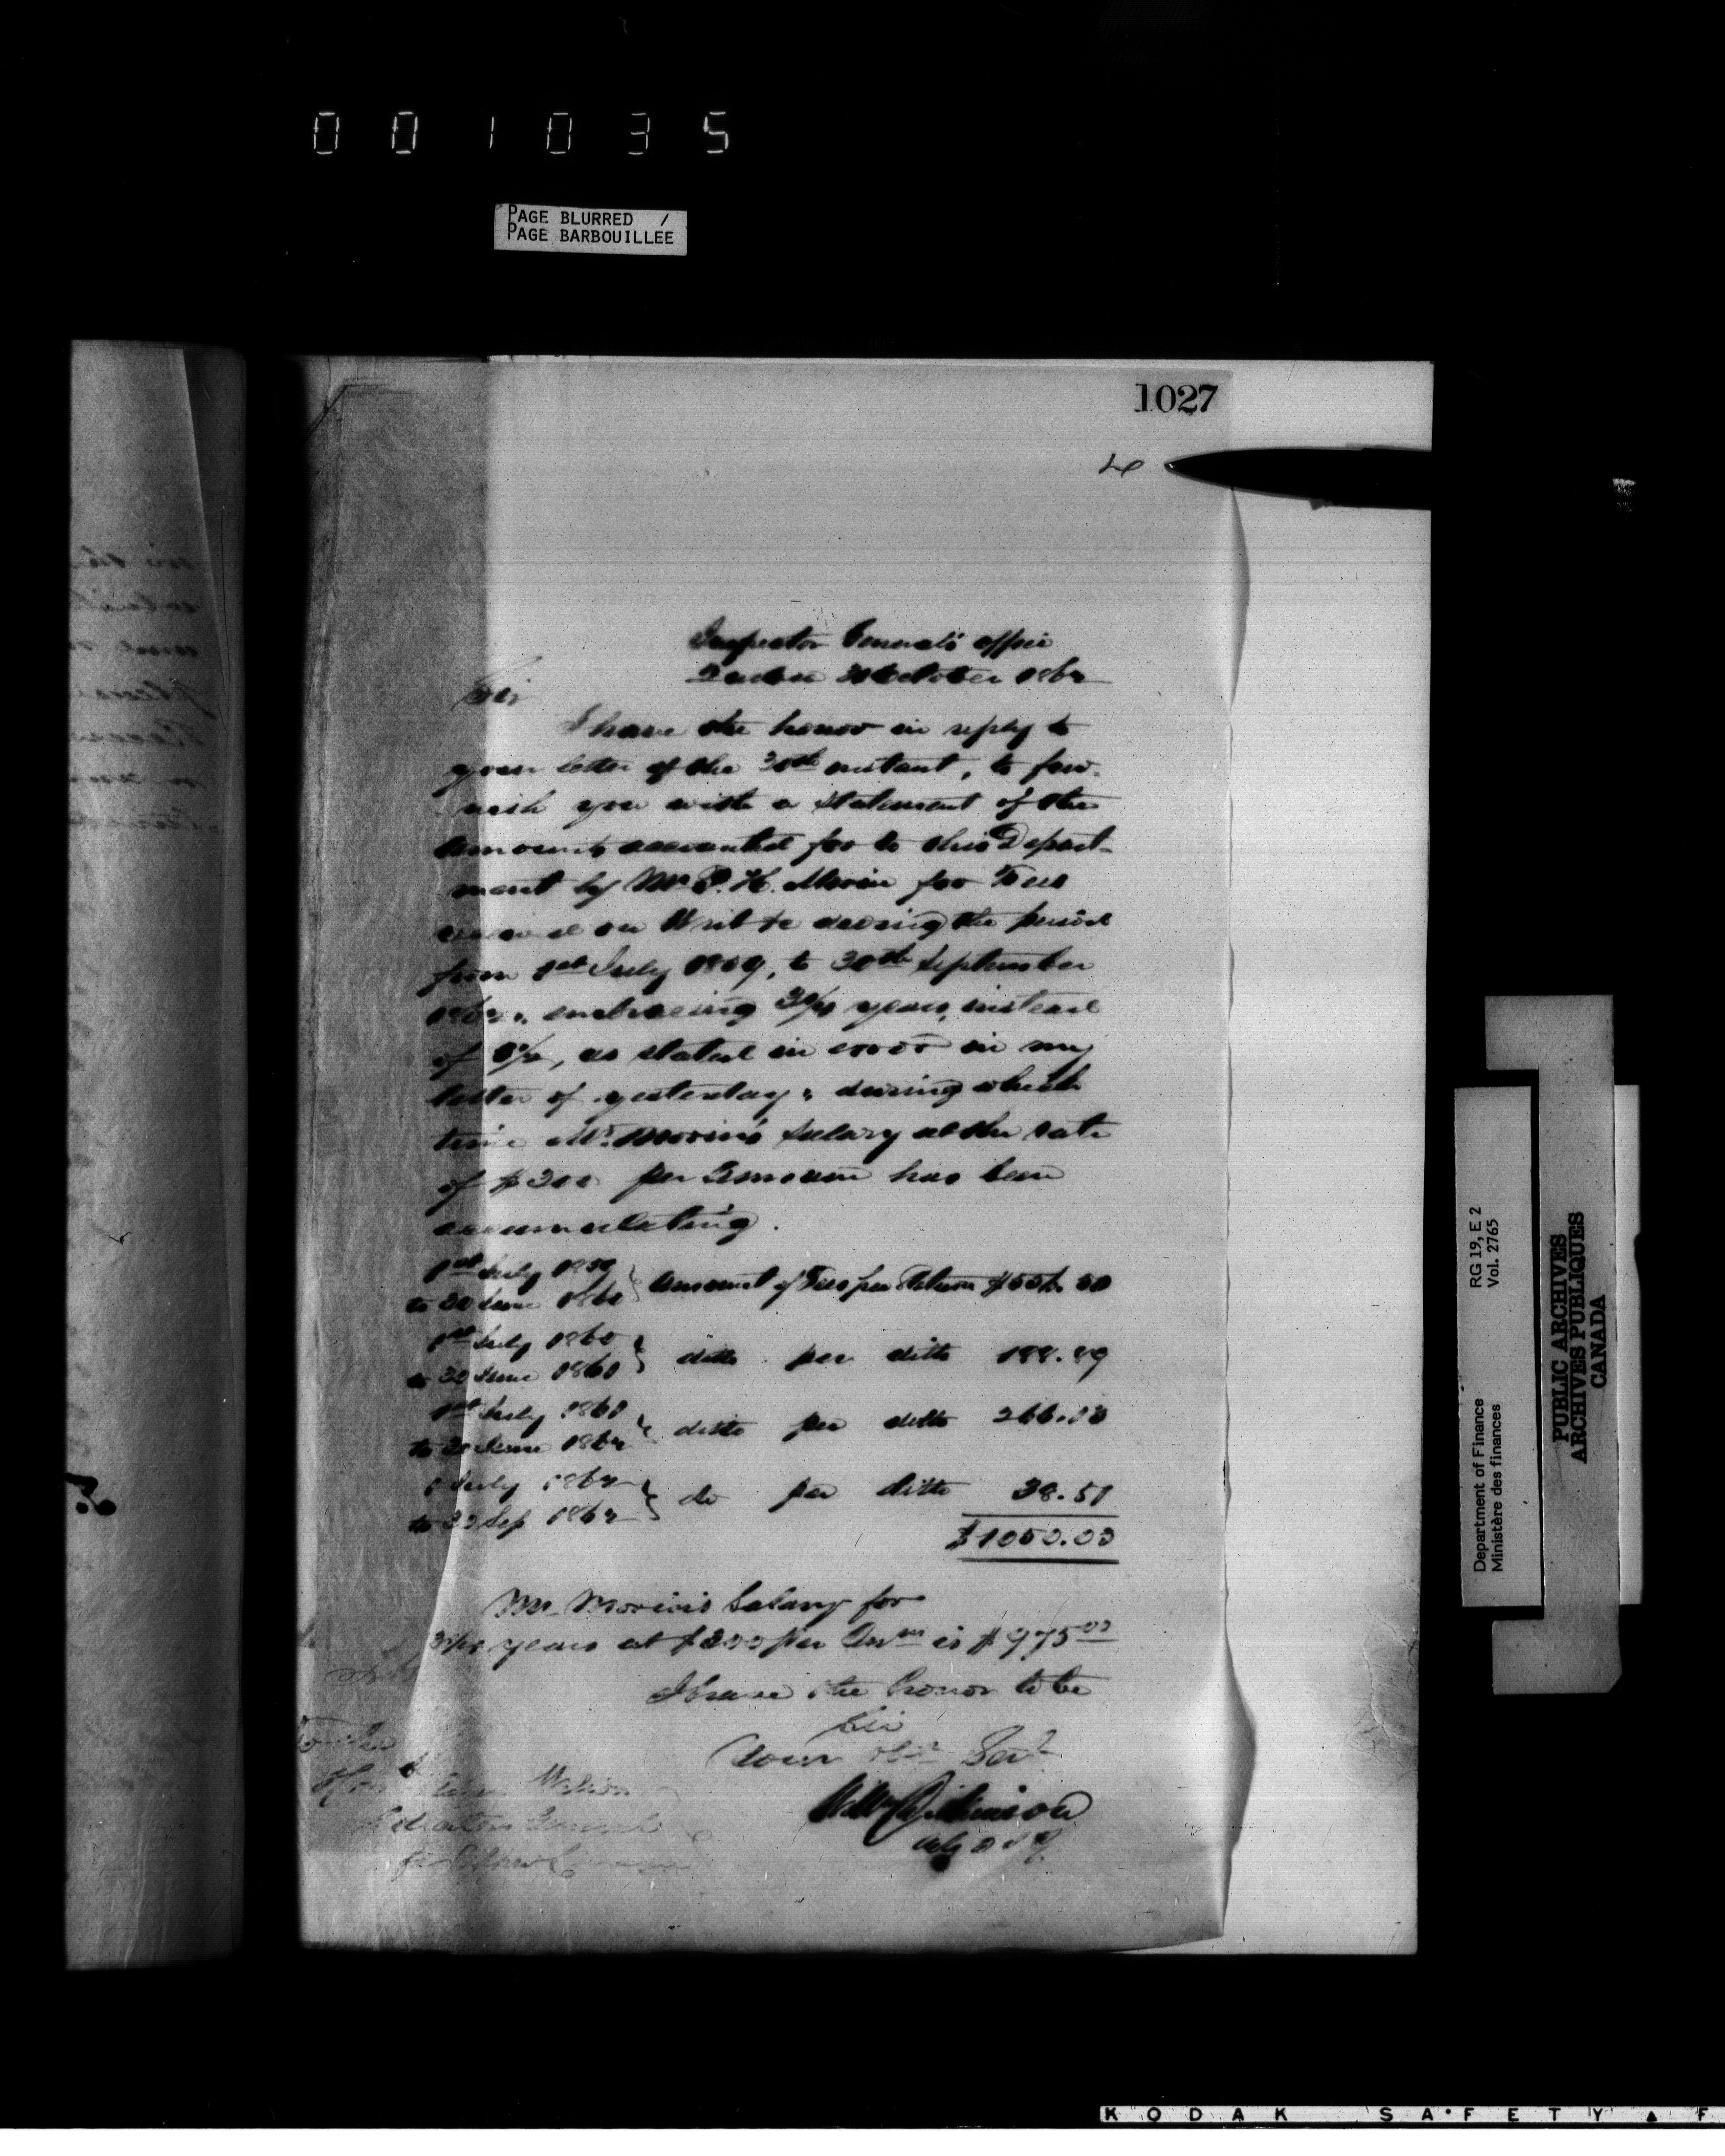 001035
PAGE BLURRED /
PAGE BARBOUILLEE
1027
Inspector General's Office
Quebec 31 October 1862
Sir
I have the honor in reply to
your letter of the 30th instant, to fur-
nish you with a statement of the
amounts accounted for to this Depart-
ment by Mr P. H. Morin for Fees
received on Writs &c during the period
from 1st July 1859, to 30th September
1862, embracing 3¼ years, instead
of as stated in error in my
letter of yesterday, during which
time Mr. Morin's Salary at the rate
of $300 per Annum has been
accumulating.
1st July 1859
to 30 June 1860 } Amount of Fees per Return
1st July 1860
to 30 June 1861 } ditto per ditto
1st July 1861
to 30 June 1862 } ditto per ditto
1 July 1862
to 30 Sep 1862 } do per ditto 38.51
$1050.00
Mr. Morin's Salary for
3¼ years at $300 per Anm is $975.00
I have the honor to be
Sir
Your obt Servt
Wm Dickinson
RG 19, E 2
Vol. 2765
Department of Finance
Ministère des finances
PUBLIC ARCHIVES
ARCHIVES PUBLIQUES
CANADA
KODAK SAFETY F